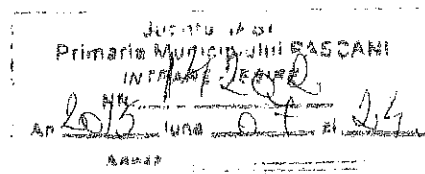 Judeţul Iaşi
Primaria Municipiului PASCANI
INTRARE - IEŞIRE
NR. 14202
An 2015 luna 07 zi 24
Anexe